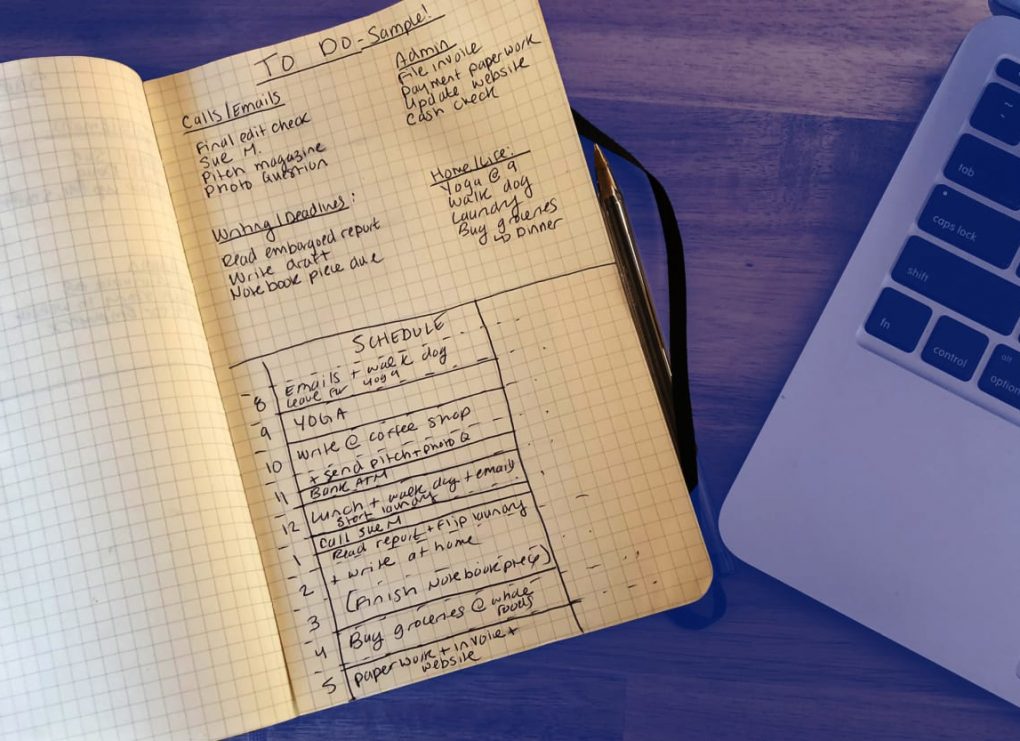 TO DO-Sample!
Calls/Emails
Final edit check
Sue M.
Pitch magazine
Photo Question
Writing/Deadlines:
Read embargoed report
Write draft
Notebook piece due
Admin
File invoice
Payment paperwork
Update website
Cash check
Home/Life:
Yoga @ 9
Walk dog
Laundry
Buy groceries
↳ Dinner
SCHEDULE
8 Emails + walk dog
Leave for yoga
9 YOGA
10 write @ coffee shop
+ send pitch + photo Q
11 Bank ATM
12 Lunch + walk dog + email
start laundry
Call Sue M.
1 Read report + flip laundry
2 + write at home
3 (Finish Notebook piece)
4 Buy groceries @ whole
foods
5 paperwork + invoice +
website
tab
caps lock
shift
fn
control
alt
option